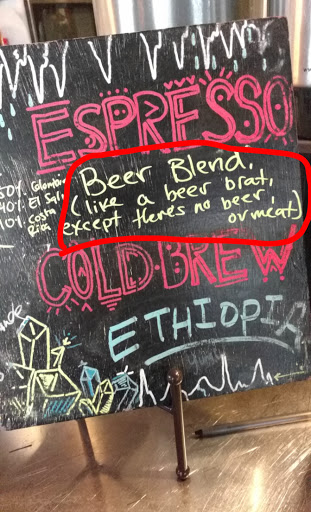 ESPRESSO
Beer Blend,
50% Colombia
(like a beer brat,
40% El Sal
except theres no beer,
10% Costa Rica
or meat)
COLD·BREW
ETHIOPIA